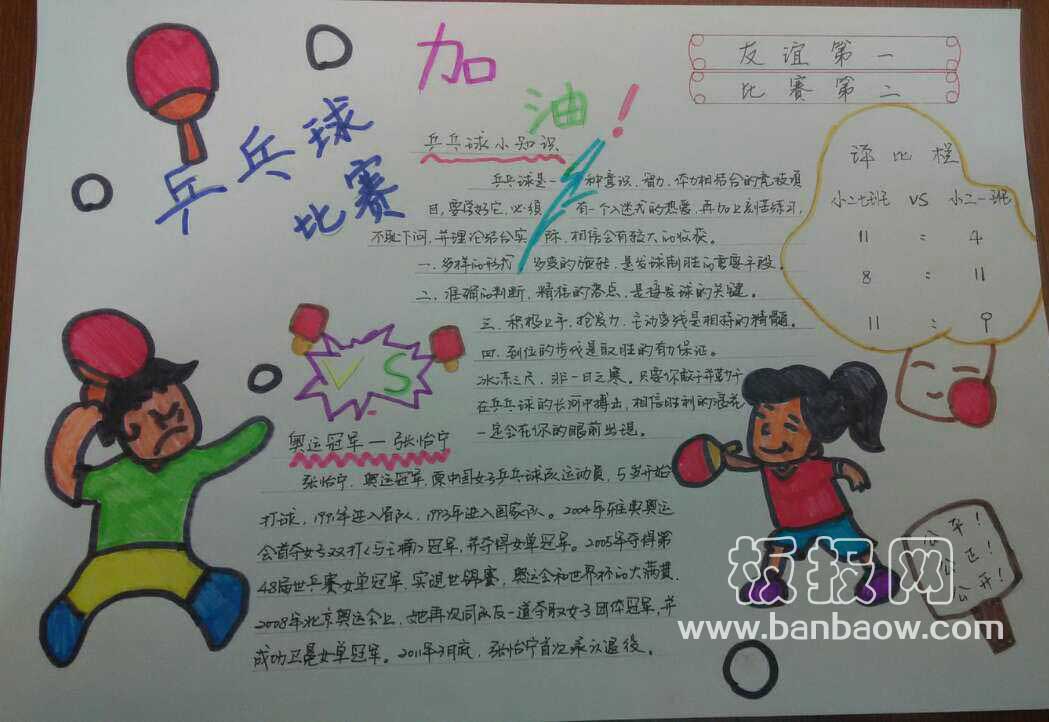 加油！
乒乓球
比赛
友谊第一
比赛第二
乒乓球小知识
乒乓球是一种意识、智力、体力相结合的竞技项
目，要学好它，必须有一个入迷式的热爱，再加上刻苦练习，
不耻下问，并理论结合实际，相信会有较大的收获。
一、多样的形式多变的旋转，是发球制胜的重要手段。
二、准确的判断，精悟的落点，是接发球的关键。
三、积极上手，抢发力，主动变线是相持的精髓。
四、到位的步伐是取胜的有力保证。
冰冻三尺，非一日之寒。只要你敢于并勇于
在乒乓球的长河中搏击，相信胜利的浪花
一定会在你的眼前出现。
评比栏
小二七班 VS 小二一班
11 : 4
8 : 11
11 : 9
VS
奥运冠军—张怡宁
张怡宁，奥运冠军，原中国女子乒乓球队运动员，5岁开始
打球，1991年进入省队，1993年进入国家队。2004年雅典奥运
会首夺女子双打<与王楠>冠军，并夺得女单冠军。2005年夺得第
48届世乒赛女单冠军，实现世锦赛，奥运会和世界杯的大满贯。
2008年北京奥运会上，她再次同队友一道夺取女子团体冠军，并
成功卫冕女单冠军。2011年3月底，张怡宁首次承认退役。
公平！
公正！
公开！
板报网
www.banbaow.com